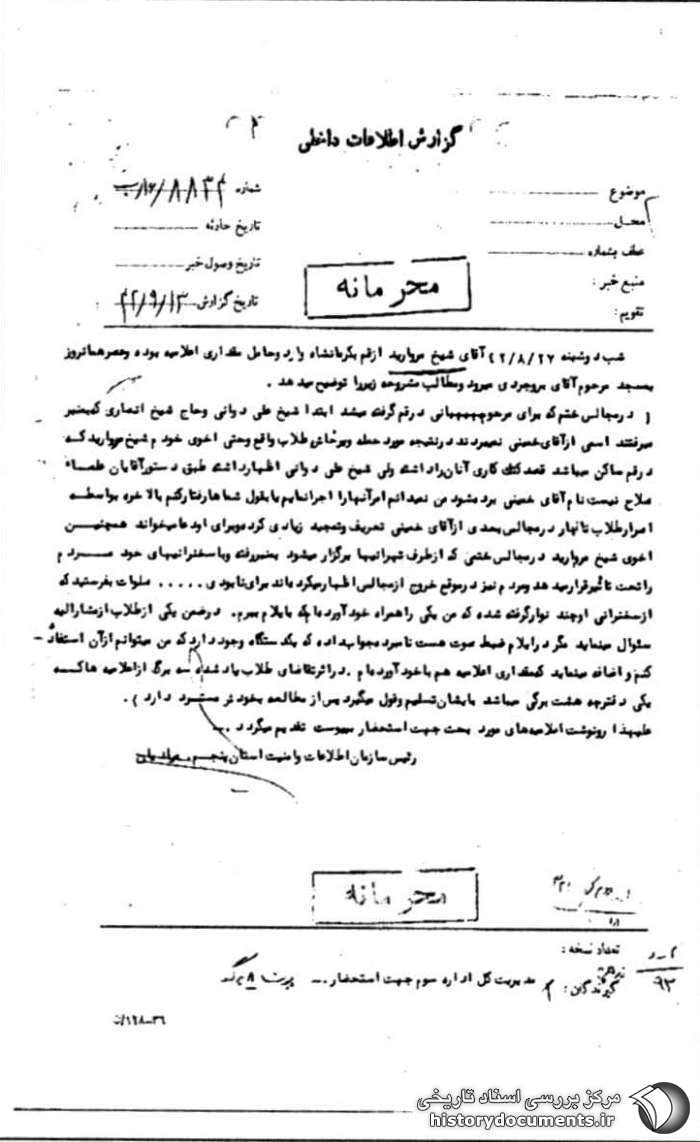 گزارش اطلاعات داخلی
موضوع
شماره ۸۸۳۴/۱۶
محل
تاریخ حادثه
عطف بشماره
تاریخ وصول خبر
منبع خبر :
محرمانه
تاریخ گزارش ۴۲/۹/۱۳
تقویم:
شب دوشنبه ۴۲/۸/۲۷ آقای شیخ مروارید ازقم بکرمانشاه وارد وحامل مقداری اعلامیه بوده وعصرهمانروز
بمسجد مرحوم آقای بروجردی میرود ومطالب مشروحه زیررا توضیح میدهد .
( درمجالس ختم که برای مرحوم بهبهانی درقم گرفته میشد ابتدا شیخ علی دوانی وحاج شیخ انصاری که بمنبر
میرفتند اسمی ازآقای خمینی نمیبردند درنتیجه مورد حمله وپرخاش طلاب واقع وحتی اخوی خودم شیخ مروارید که
درقم ساکن میباشد قصد کتک کاری آنان راداشته ولی شیخ علی دوانی اظهارداشته طبق دستورآقایان علماء
صلاح نیست نام آقای خمینی برده شود من نمیدانم امرآنهارا اجرانمایم یا بقول شماها رفتارکنم بالاخره بواسطه
اصرارطلاب نامبرده درمجالس بعدی ازآقای خمینی تعریف وتمجید زیادی کرده وبرای او دعا میخواند همچنین
اخوی شیخ مروارید درمجالس ختمی که ازطرف تهرانیها برگزار میشود بمنبررفته وباسخنرانیهای خود مردم
راتحت تاثیرقرارمیدهد ومردم نیز درموقع خروج ازمجالس اظهارمیکرده‌اند برای نابودی ..... صلوات بفرستید که
ازسخنرانی اوچند نوارگرفته شده که من یکی راهمراه خود آورده‌ام که بایلام ببرم . درضمن یکی ازطلاب ازمشارالیه
سئوال مینماید مگر درایلام ضبط صوت هست نامبرده جواب داده که یکدستگاه وجود دارد که من میتوانم ازآن استفاده –
کنم و اضافه مینماید که مقداری اعلامیه هم باخود آورده‌ام . دراثرتقاضای طلاب یاد شده سه برگ ازاعلامیه هاکه
یکی دفترچه هشت برگی میباشد بایشان تسلیم وقول میگیرد پس از مطالعه بخودش مسترد دارد ) .
علیهذا رونوشت اعلامیه‌های مورد بحث جهت استحضار بپیوست تقدیم میگردد .–
رئیس سازمان اطلاعات وامنیت استان پنجم .
محرمانه
تعداد نسخه :
گیرندگان :
مدیریت کل اداره سوم جهت استحضار .–
۹۳
مرکز بررسی اسناد تاریخی
historydocuments.ir